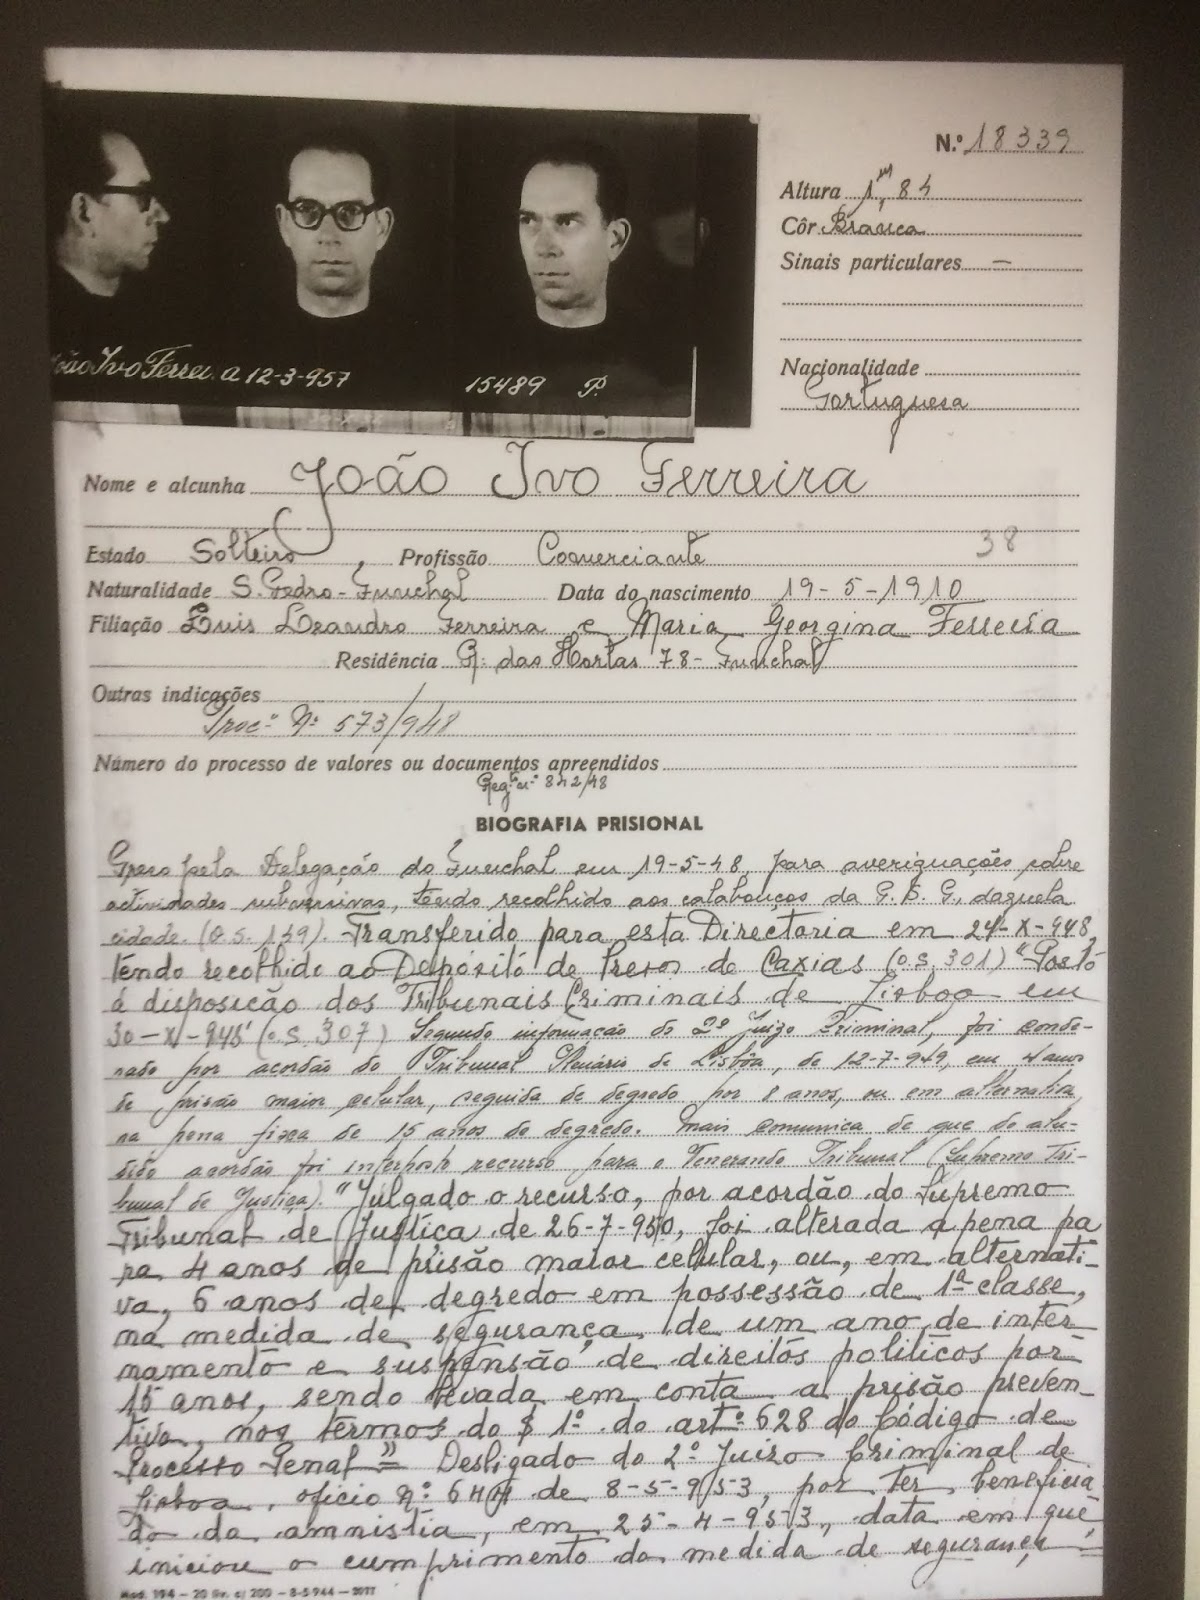 N.º 18339
Altura 1m,84
Côr Branca
Sinais particulares —
Nacionalidade
Portuguesa
João Ivo Ferreira 12-3-957
15489 P.
Nome e alcunha João Ivo Ferreira
Estado Solteiro, Profissão Comerciante 38
Naturalidade S. Pedro - Funchal Data do nascimento 19-5-1910
Filiação Luis Leandro Ferreira e Maria Georgina Ferreira
Residência R. das Hortas 78 - Funchal
Outras indicações
Proc.º N.º 573/948
Número do processo de valores ou documentos apreendidos
Reg.º n.º 842/48
BIOGRAFIA PRISIONAL
Preso pela Delegação do Funchal em 19-5-48, para averiguações sobre
actividades subversivas, tendo recolhido aos calabouços da P. S. P., daquela
cidade. (O.S. 139). Transferido para esta Directoria em 24-X-948,
tendo recolhido ao Depósito de Presos de Caxias (O.S. 301) "Posto
á disposição dos Tribunais Criminais de Lisboa em
30-X-948" (O.S. 307) Segundo informação do 2º Juizo Criminal, foi conde-
nado por acordão do Tribunal Plenário de Lisbôa, de 12-7-949, em 4 anos
de prisão maior celular, seguida de degredo por 8 anos, ou em alternativa
na pena fixa de 15 anos de degredo. Mais comunica de que do alu-
dido acordão foi interposto recurso para o Venerando Tribunal (Supremo Tri-
bunal de Justiça). "Julgado o recurso, por acordão do Supremo
Tribunal de Justiça de 26-7-950, foi alterada a pena pa
ra 4 anos de prisão maior celular, ou, em alternati-
va, 6 anos de degredo em possessão de 1ª classe,
na medida de segurança, de um ano de inter-
namento e suspensão de direitos politicos por
15 anos, sendo levada em conta a prisão preven-
tiva, nos termos do § 1º do artº 628 do Código de
Processo Penal" = Desligado do 2º Juizo Criminal de
Lisboa, oficio nº 644 de 8-5-953, por ter beneficia
do da amnistia, em 25-4-953, data em que
iniciou o cumprimento da medida de segurança.
Mod. 194 — 20 liv. c/ 200 — 8-5 944 —